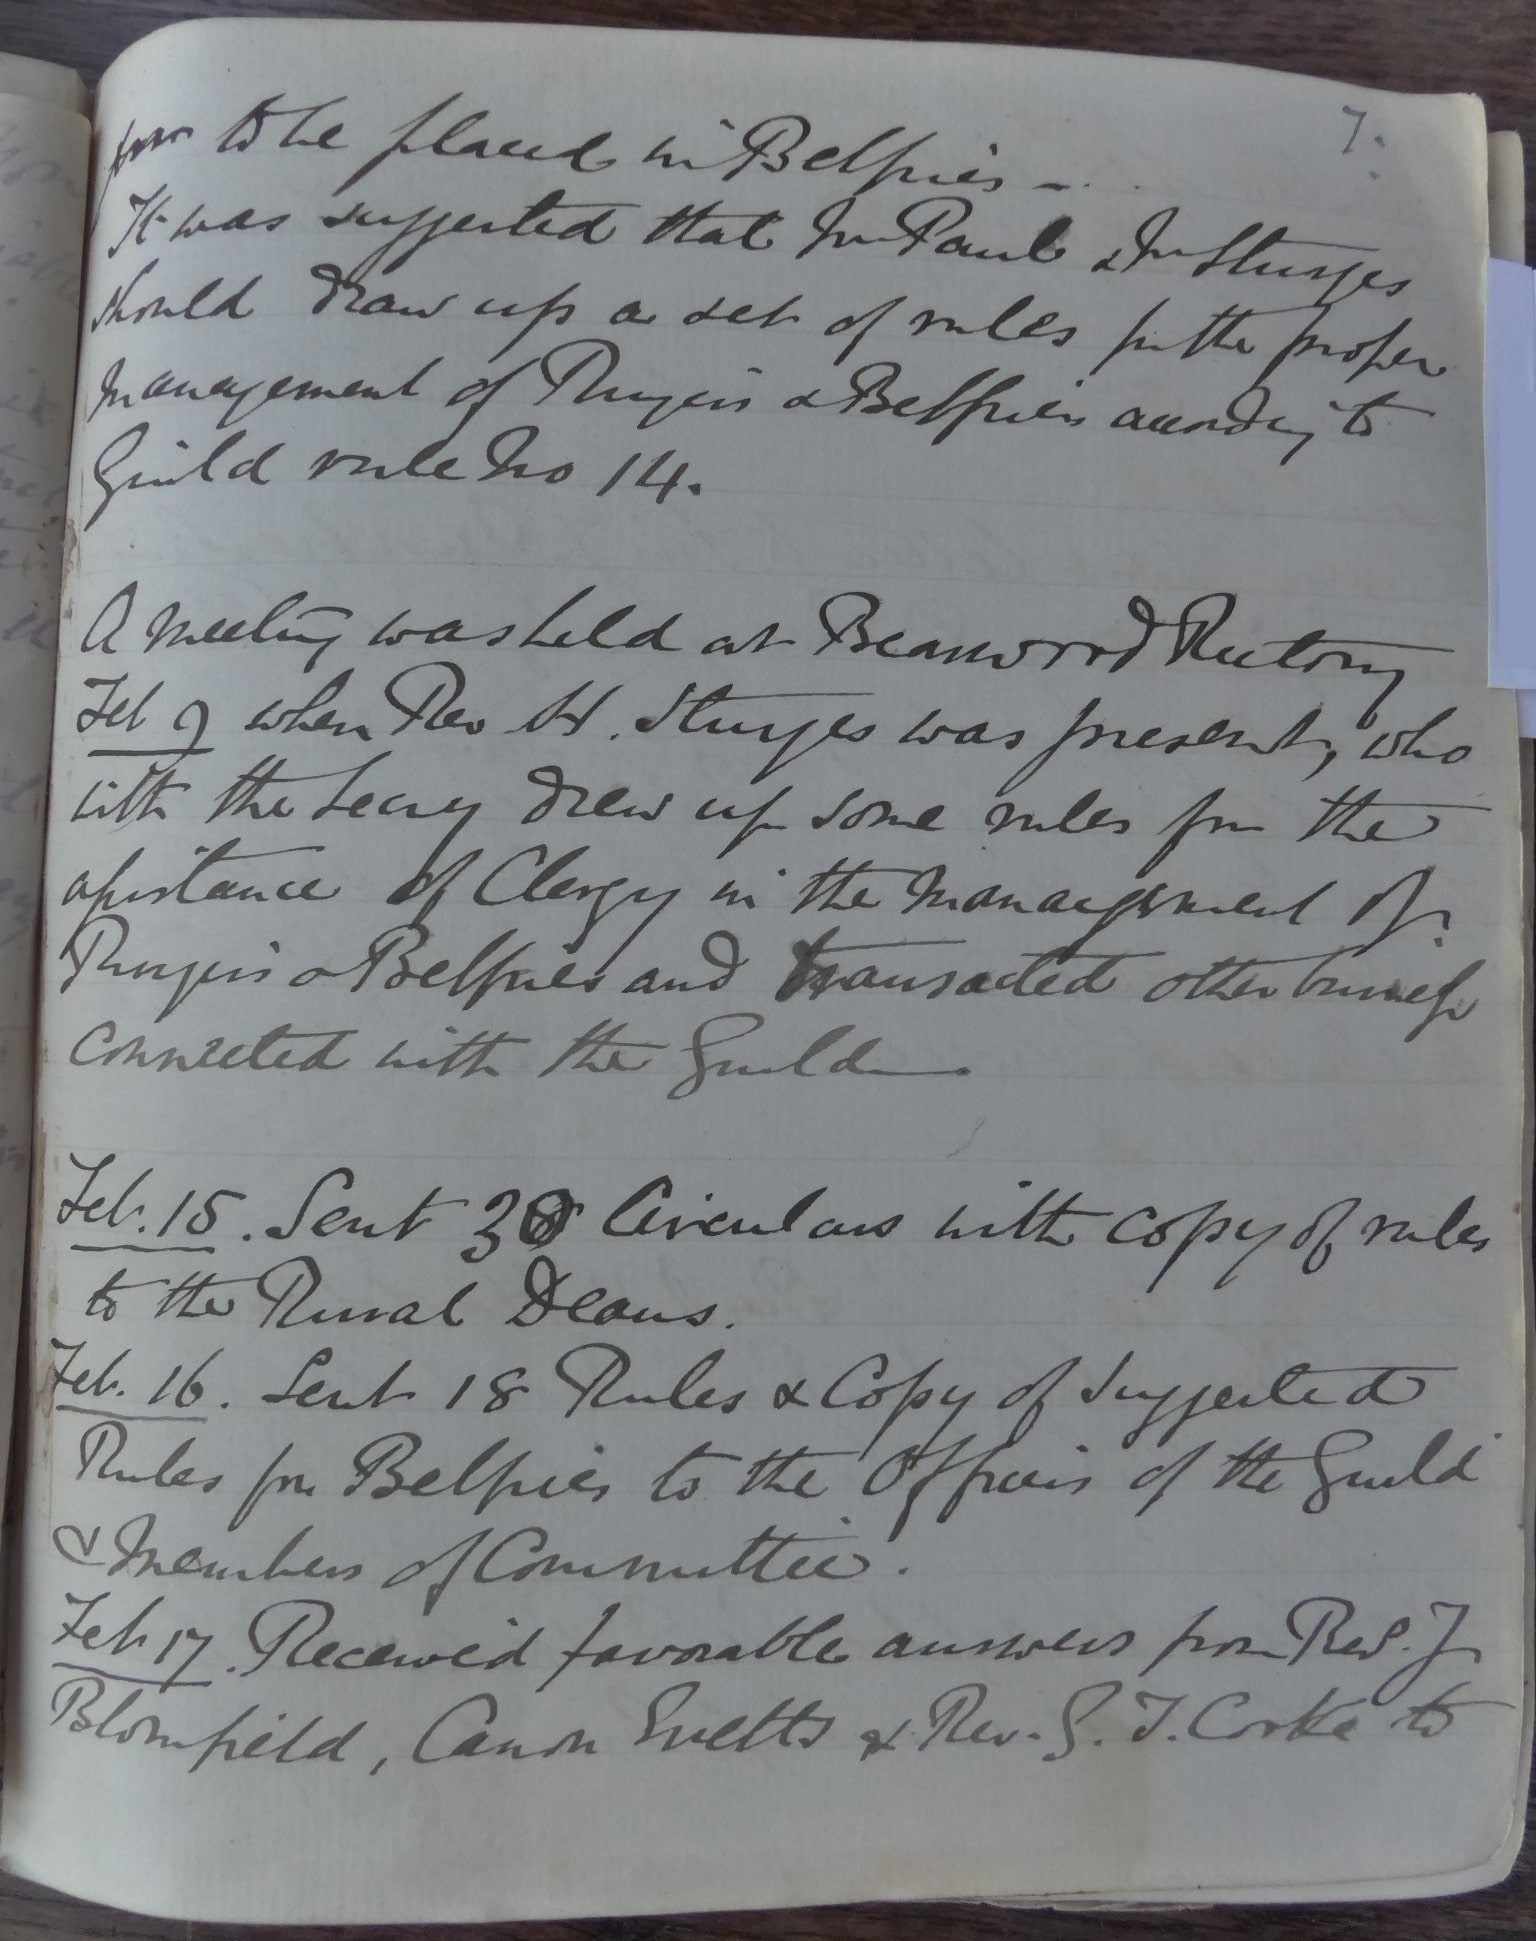 7.
to be placed in Belfries -
It was suggested that Mr Paul & Mr Sturges
should draw up a set of rules for the proper
Management of Ringers & Belfries according to
Guild rule No 14.
A Meeting was held at Rectory
Feb 9 when Rev H. Sturges was present, who
with the Secry drew up some rules for the
assistance of Clergy in the Management of
Ringers & Belfries and transacted other business
connected with the Guild.
Feb. 15. Sent 30 Circulars with copy of rules
to the Rural Deans.
Feb. 16. Sent 18 Rules & Copy of Suggested
Rules for Belfries to the Officers of the Guild
& Members of Committee.
Feb 17. Received favorable answers from Rev. J
Blomfield, Canon Evetts & Rev. G. T. Corke to